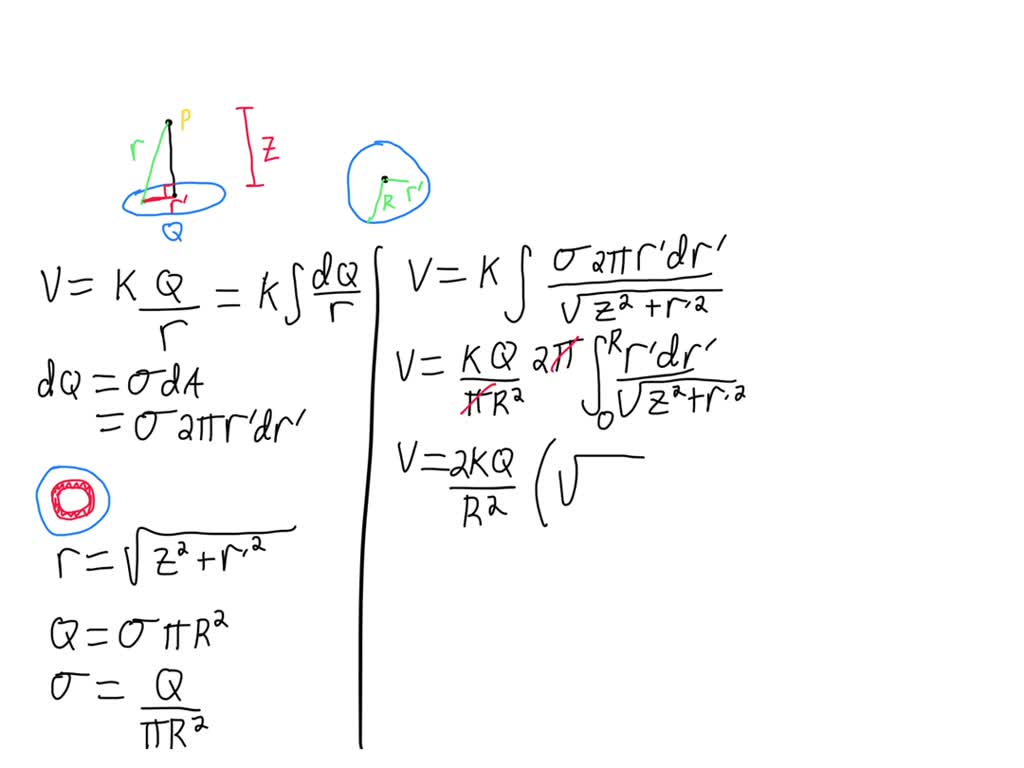 P
r
z
r'
Q
R r'
V = K Q/r = K∫ dQ/r
dQ = σdA
= σ2πr'dr'
r = √(z² + r'²)
Q = σπR²
σ = Q/πR²
V = K ∫ σ2πr'dr'/√(z² + r'²)
V = KQ/πR² 2π ∫₀ᴿ r'dr'/√(z² + r'²)
V = 2KQ/R² (√